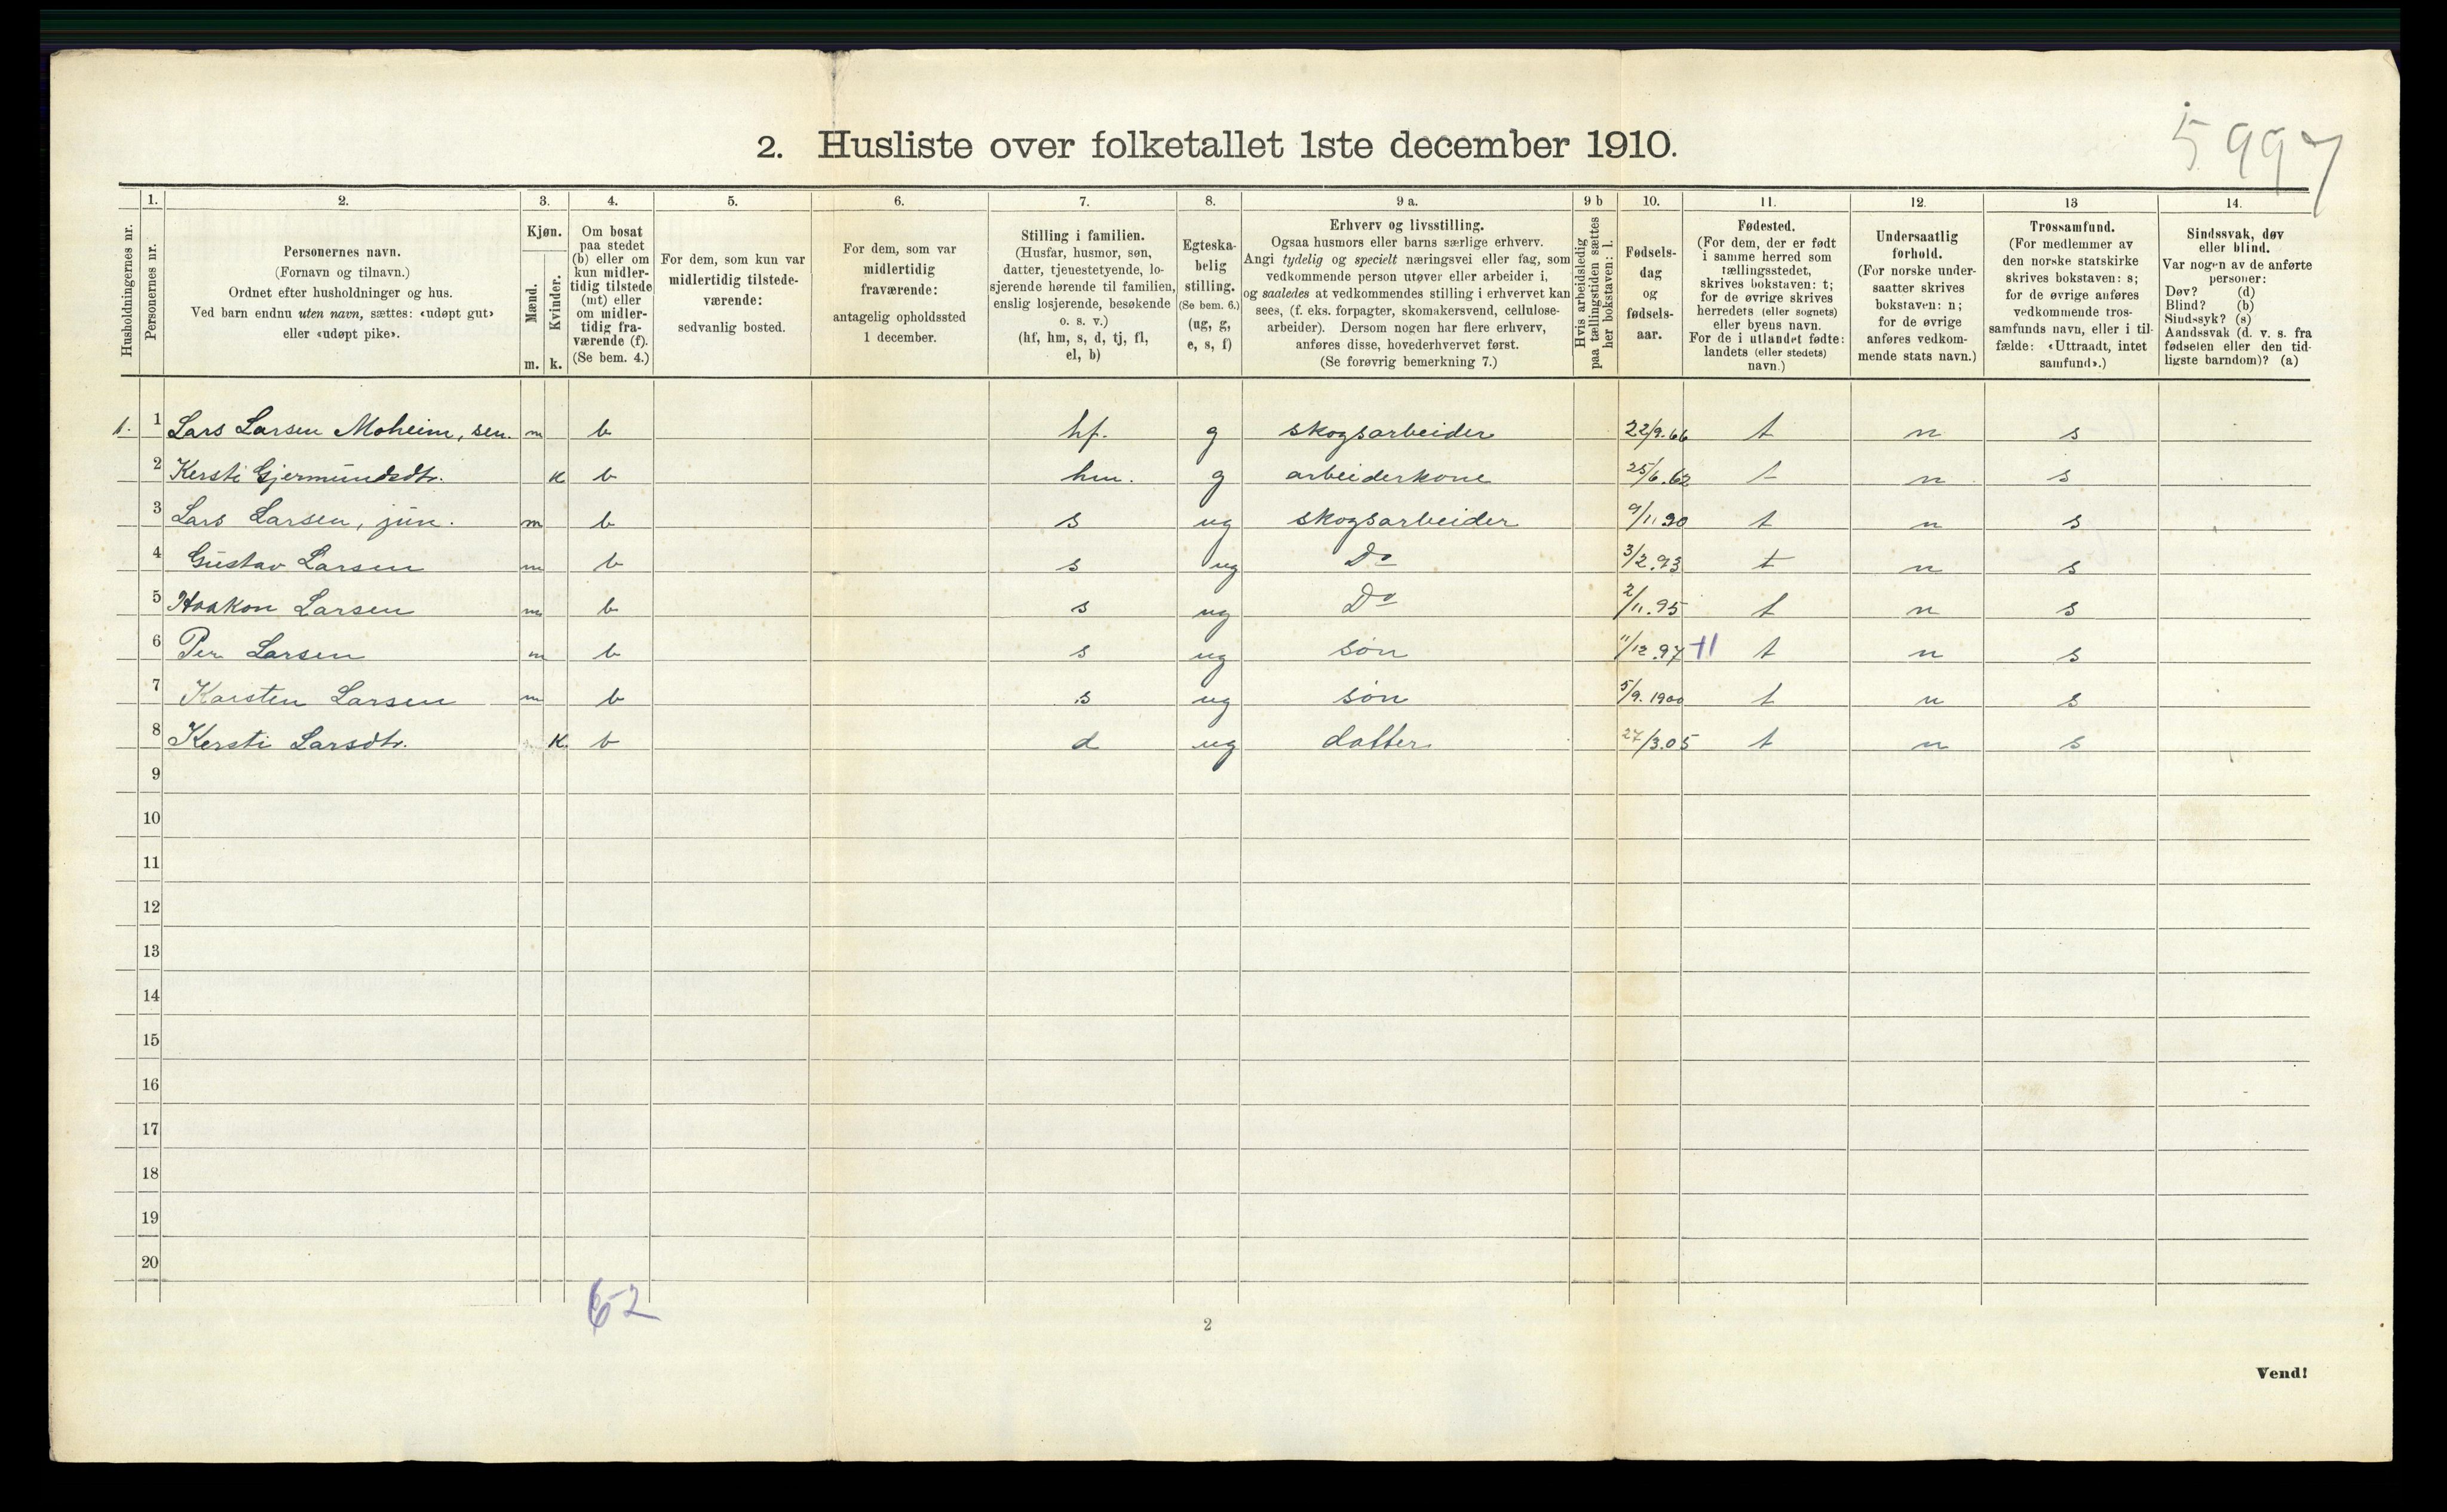 5997
2. Husliste over folketallet 1ste december 1910.
Husholdningernes nr.
1.
Personernes nr.
2.
Personernes navn.
(Fornavn og tilnavn.)
Ordnet efter husholdninger og hus.
Ved barn endnu uten navn, sættes: «udøpt gut»
eller «udøpt pike».
3.
Kjøn.
Mænd.
Kvinder.
m. k.
4.
Om bosat
paa stedet
(b) eller om
kun midler-
tidig tilstede
(mt) eller
om midler-
tidig fra-
værende (f).
(Se bem. 4.)
5.
For dem, som kun var
midlertidig tilstede-
værende:
sedvanlig bosted.
6.
For dem, som var
midlertidig
fraværende:
antagelig opholdssted
1 december.
7.
Stilling i familien.
(Husfar, husmor, søn,
datter, tjenestetyende, lo-
sjerende hørende til familien,
enslig losjerende, besøkende
o. s. v.)
(hf, hm, s, d, tj, fl,
el, b)
8.
Egteska-
belig
stilling.
(Se bem. 6.)
(ug, g,
e, s, f)
9 a.
Erhverv og livsstilling.
Ogsaa husmors eller barns særlige erhverv.
Angi tydelig og specielt næringsvei eller fag, som
vedkommende person utøver eller arbeider i,
og saaledes at vedkommendes stilling i erhvervet kan
sees, (f. eks. forpagter, skomakersvend, cellulose-
arbeider). Dersom nogen har flere erhverv,
anføres disse, hovederhvervet først.
(Se forøvrig bemerkning 7.)
9 b
Hvis arbeidsledig
paa tællingstiden sættes
her bokstaven: l.
10.
Fødsels-
dag
og
fødsels-
aar.
11.
Fødested.
(For dem, der er født
i samme herred som
tællingsstedet,
skrives bokstaven: t;
for de øvrige skrives
herredets (eller sognets)
eller byens navn.
For de i utlandet fødte:
landets (eller stedets)
navn.)
12.
Undersaatlig
forhold.
(For norske under-
saatter skrives
bokstaven: n;
for de øvrige
anføres vedkom-
mende stats navn.)
13
Trossamfund.
(For medlemmer av
den norske statskirke
skrives bokstaven: s;
for de øvrige anføres
vedkommende tros-
samfunds navn, eller i til-
fælde: «Uttraadt, intet
samfund».)
14.
Sindssvak, døv
eller blind.
Var nogen av de anførte
personer:
Døv? (d)
Blind? (b)
Sindssyk? (s)
Aandssvak (d. v. s. fra
fødselen eller den tid-
ligste barndom)? (a)
1. 1 Lars Larsen Moheim, sen. m b hf. g skogsarbeider 22/9.66 t n s
2 Kersti Gjermundsdtr. k b hm. g arbeiderkone 25/6.62 t n s
3 Lars Larsen, jun. m b s ug skogsarbeider 9/11 90 t n s
4 Gustav Larsen m b s ug Do 3/2.93 t n s
5 Haakon Larsen m b s ug Do 2/11.95 t n s
6 Per Larsen m b s ug søn 11/12.97 t n s
7 Karsten Larsen m b s ug søn 5/9.1900 t n s
8 Kersti Larsdtr. k. b d ug datter 27/3.05 t n s
9
10
11
12
13
14
15
16
17
18
19
20
62
2
Vend!